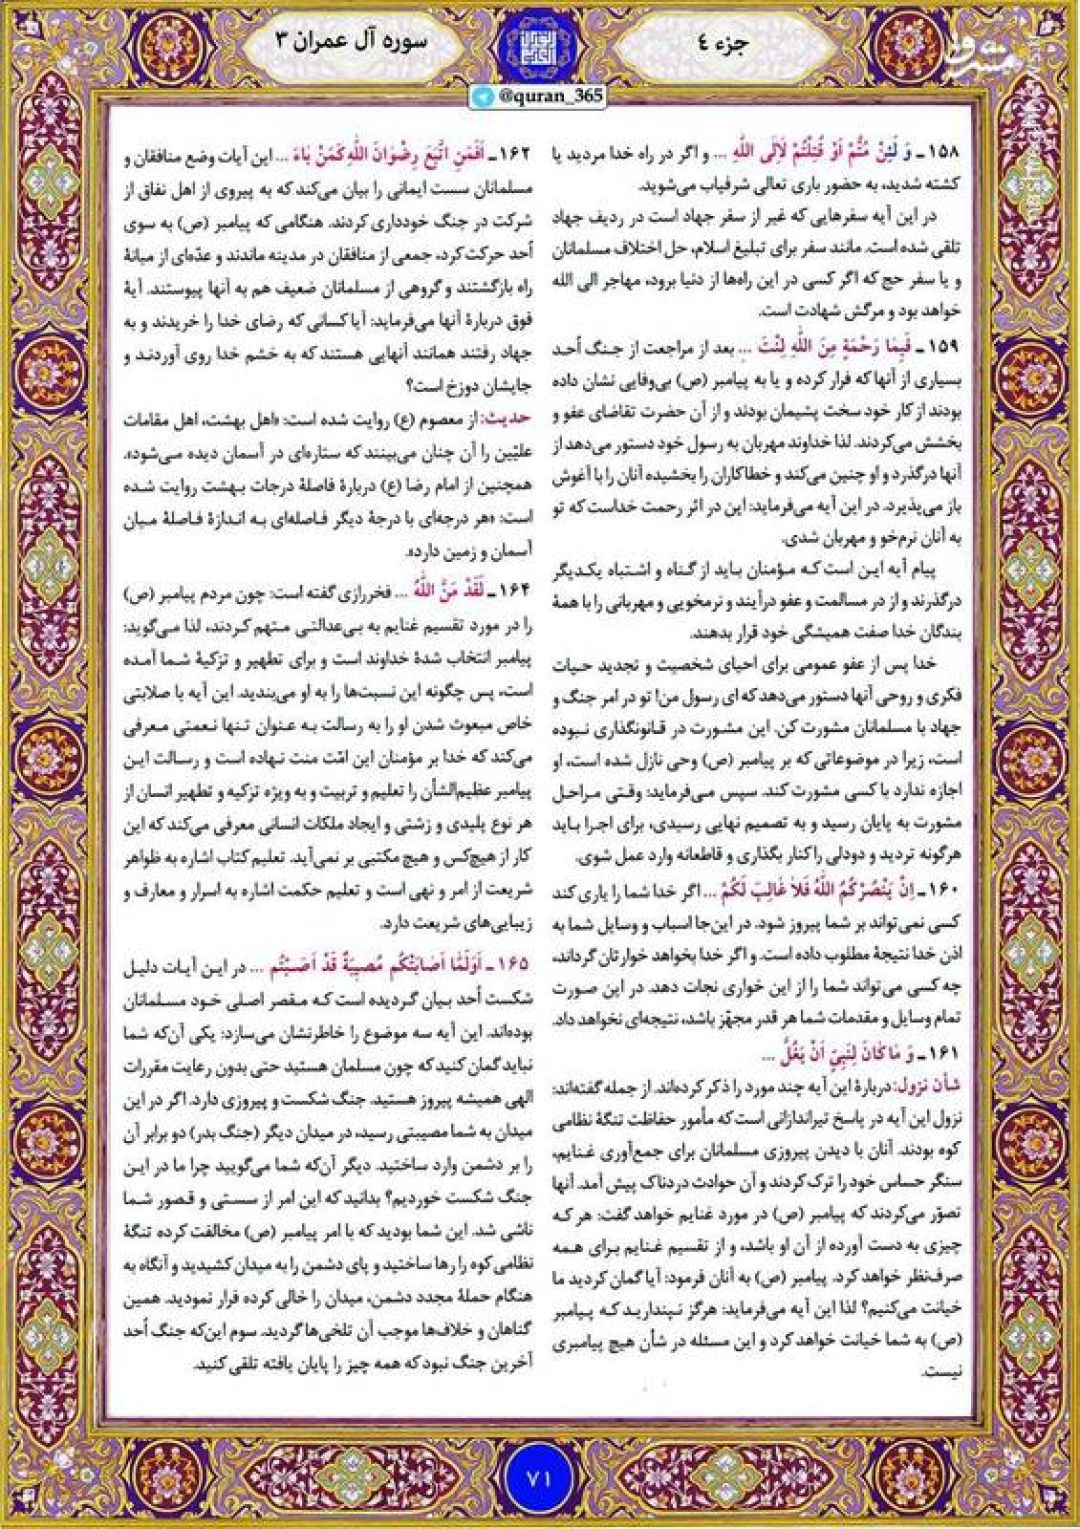 جزء ٤
سوره آل عمران ٣
مشرق
@quran_365
۱۵۸ـ وَ لَئِنْ مُتُّمْ اَوْ قُتِلْتُمْ لَاِلَی اللّٰهِ ... و اگر در راه خدا مردید یا
کشته شدید، به حضور باری تعالی شرفیاب می‌شوید.
در این آیه سفرهایی که غیر از سفر جهاد است در ردیف جهاد
تلقی شده است. مانند سفر برای تبلیغ اسلام، حل اختلاف مسلمانان
و یا سفر حج که اگر کسی در این راه‌ها از دنیا برود، مهاجر الی الله
خواهد بود و مرگش شهادت است.
۱۵۹ـ فَبِمَا رَحْمَةٍ مِنَ اللّٰهِ لِنْتَ ... بعد از مراجعت از جنگ اُحد
بسیاری از آنها که فرار کرده و یا به پیامبر (ص) بی‌وفایی نشان داده
بودند از کار خود سخت پشیمان بودند و از آن حضرت تقاضای عفو و
بخشش می‌کردند. لذا خداوند مهربان به رسول خود دستور می‌دهد از
آنها درگذرد و او چنین می‌کند و خطاکاران را بخشیده آنان را با آغوش
باز می‌پذیرد. در این آیه می‌فرماید: این در اثر رحمت خداست که تو
به آنان نرم‌خو و مهربان شدی.
پیام آیه این است که مؤمنان باید از گناه و اشتباه یکدیگر
درگذرند و از در مسالمت و عفو درآیند و نرمخویی و مهربانی را با همهٔ
بندگان خدا صفت همیشگی خود قرار بدهند.
خدا پس از عفو عمومی برای احیای شخصیت و تجدید حیات
فکری و روحی آنها دستور می‌دهد که ای رسول من! تو در امر جنگ و
جهاد با مسلمانان مشورت کن. این مشورت در قانونگذاری نبوده
است، زیرا در موضوعاتی که بر پیامبر (ص) وحی نازل شده است، او
اجازه ندارد با کسی مشورت کند. سپس می‌فرماید: وقتی مراحل
مشورت به پایان رسید و به تصمیم نهایی رسیدی، برای اجرا باید
هرگونه تردید و دودلی را کنار بگذاری و قاطعانه وارد عمل شوی.
۱۶۰ـ اِنْ یَنْصُرْکُمُ اللّٰهُ فَلاٰ غالِبَ لَکُمْ ... اگر خدا شما را یاری کند
کسی نمی‌تواند بر شما پیروز شود. در این‌جا اسباب و وسایل شما به
اذن خدا نتیجهٔ مطلوب داده است. و اگر خدا بخواهد خوارتان گرداند،
چه کسی می‌تواند شما را از این خواری نجات دهد. در این صورت
تمام وسایل و مقدمات شما هر قدر مجهّز باشد، نتیجه‌ای نخواهد داد.
۱۶۱ـ وَ مٰا کٰانَ لِنَبِیٍّ اَنْ یَغُلَّ ...
شأن نزول: دربارهٔ این آیه چند مورد را ذکر کرده‌اند. از جمله گفته‌اند:
نزول این آیه در پاسخ تیراندازانی است که مأمور حفاظت تنگهٔ نظامی
کوه بودند. آنان با دیدن پیروزی مسلمانان برای جمع‌آوری غنایم،
سنگر حساس خود را ترک کردند و آن حوادث دردناک پیش آمد. آنها
تصوّر می‌کردند که پیامبر (ص) در مورد غنایم خواهد گفت: هر که
چیزی به دست آورده از آن او باشد، و از تقسیم غنایم برای همه
صرف‌نظر خواهد کرد. پیامبر (ص) به آنان فرمود: آیا گمان کردید ما
خیانت می‌کنیم؟ لذا این آیه می‌فرماید: هرگز نپندارید که پیامبر
(ص) به شما خیانت خواهد کرد و این مسئله در شأن هیچ پیامبری
نیست.
۱۶۲ـ اَفَمَنِ اتَّبَعَ رِضْوٰانَ اللّٰهِ کَمَنْ بٰاءَ ... این آیات وضع منافقان و
مسلمانان سست ایمانی را بیان می‌کند که به پیروی از اهل نفاق از
شرکت در جنگ خودداری کردند. هنگامی که پیامبر (ص) به سوی
اُحد حرکت کرد، جمعی از منافقان در مدینه ماندند و عدّه‌ای از میانهٔ
راه بازگشتند و گروهی از مسلمانان ضعیف هم به آنها پیوستند. آیهٔ
فوق دربارهٔ آنها می‌فرماید: آیا کسانی که رضای خدا را خریدند و به
جهاد رفتند همانند آنهایی هستند که به خشم خدا روی آوردند و
جایشان دوزخ است؟
حدیث: از معصوم (ع) روایت شده است: «اهل بهشت، اهل مقامات
علیّین را آن چنان می‌بینند که ستاره‌ای در آسمان دیده می‌شود».
همچنین از امام رضا (ع) دربارهٔ فاصلهٔ درجات بهشت روایت شده
است: «هر درجه‌ای با درجهٔ دیگر فاصله‌ای به اندازهٔ فاصلهٔ میان
آسمان و زمین دارد».
۱۶۴ـ لَقَدْ مَنَّ اللّٰهُ ... فخررازی گفته است: چون مردم پیامبر (ص)
را در مورد تقسیم غنایم به بی‌عدالتی متهم کردند، لذا می‌گوید:
پیامبر انتخاب شدهٔ خداوند است و برای تطهیر و تزکیهٔ شما آمده
است، پس چگونه این نسبت‌ها را به او می‌بندید. این آیه با صلابتی
خاص مبعوث شدن او را به رسالت به عنوان تنها نعمتی معرفی
می‌کند که خدا بر مؤمنان این امّت منت نهاده است و رسالت این
پیامبر عظیم‌الشأن را تعلیم و تربیت و به ویژه تزکیه و تطهیر انسان از
هر نوع پلیدی و زشتی و ایجاد ملکات انسانی معرفی می‌کند که این
کار از هیچ‌کس و هیچ مکتبی بر نمی‌آید. تعلیم کتاب اشاره به ظواهر
شریعت از امر و نهی است و تعلیم حکمت اشاره به اسرار و معارف و
زیبایی‌های شریعت دارد.
۱۶۵ـ اَوَلَمّٰا اَصٰابَتْکُم مُصیبَةٌ قَدْ اَصَبْتُم ... در این آیات دلیل
شکست اُحد بیان گردیده است که مقصر اصلی خود مسلمانان
بوده‌اند. این آیه سه موضوع را خاطرنشان می‌سازد: یکی آن‌که شما
نباید گمان کنید که چون مسلمان هستید حتی بدون رعایت مقررات
الهی همیشه پیروز هستید. جنگ شکست و پیروزی دارد. اگر در این
میدان به شما مصیبتی رسید، در میدان دیگر (جنگ بدر) دو برابر آن
را بر دشمن وارد ساختید. دیگر آن‌که شما می‌گویید چرا ما در این
جنگ شکست خوردیم؟ بدانید که این امر از سستی و قصور شما
ناشی شد. این شما بودید که با امر پیامبر (ص) مخالفت کرده تنگهٔ
نظامی کوه را رها ساختید و پای دشمن را به میدان کشیدید و آنگاه به
هنگام حملهٔ مجدد دشمن، میدان را خالی کرده فرار نمودید. همین
گناهان و خلاف‌ها موجب آن تلخی‌ها گردید. سوم این‌که جنگ اُحد
آخرین جنگ نبود که همه چیز را پایان یافته تلقی کنید.
۷۱